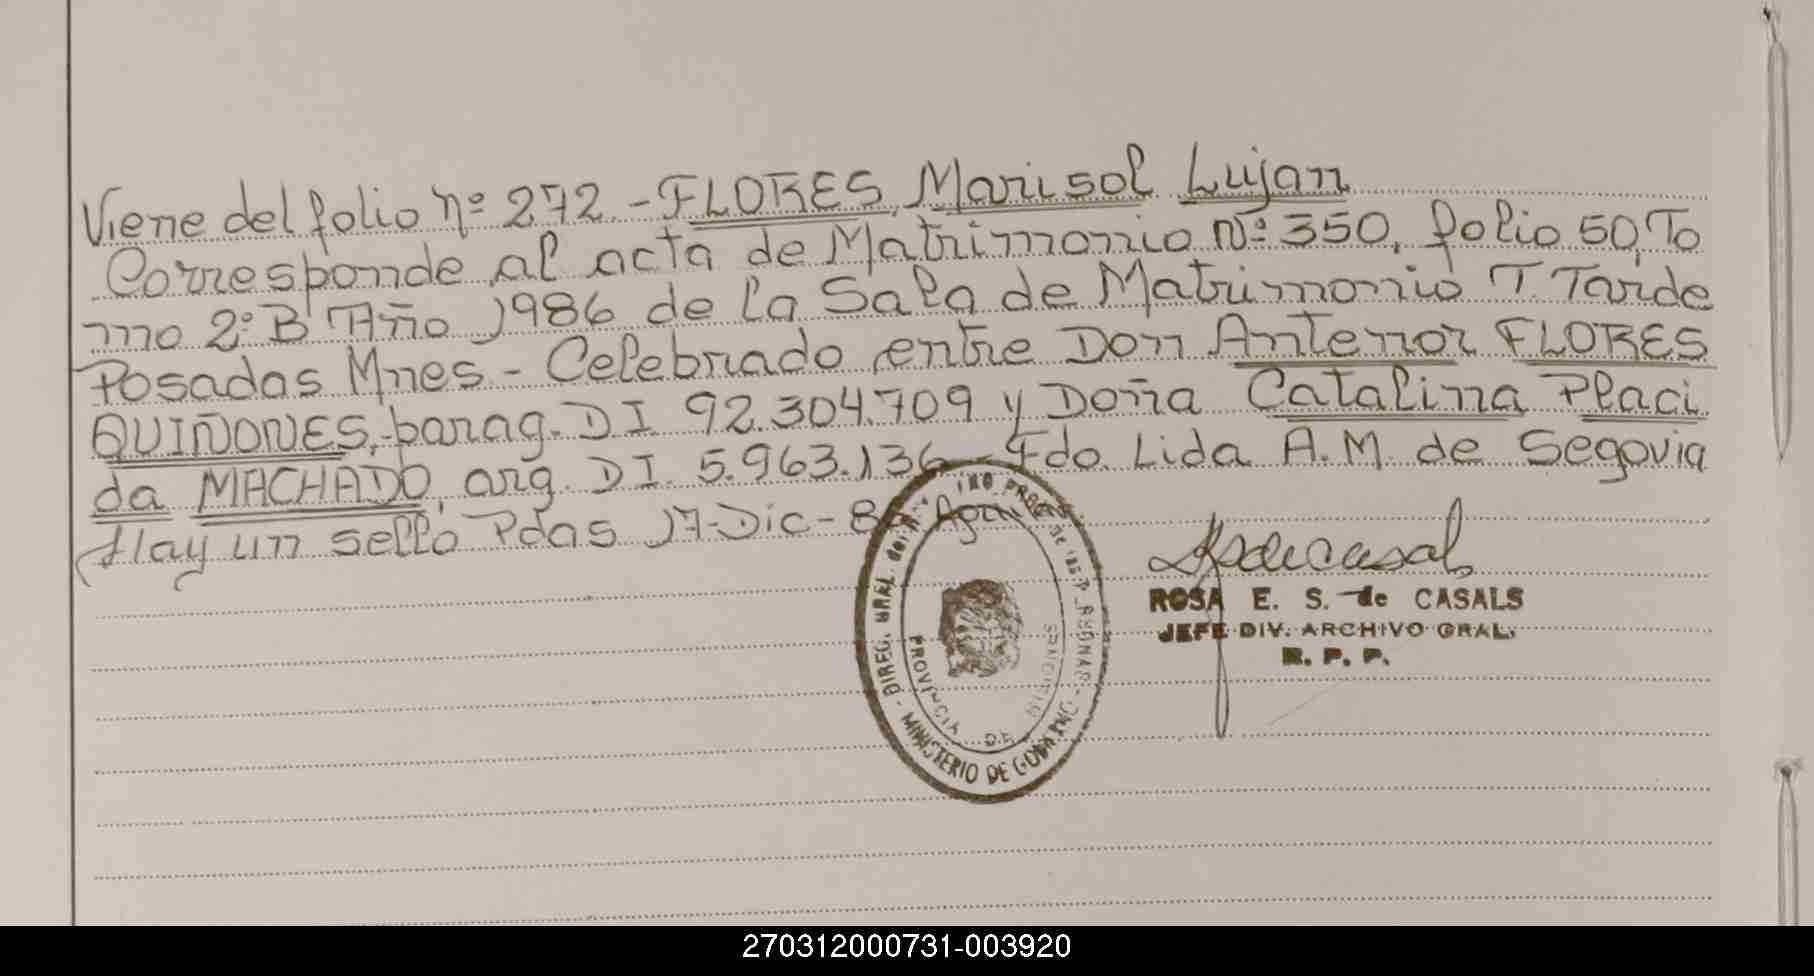 Viene del folio nº 272.-FLORES, Marisol Lujan
Corresponde al acta de Matrimonio Nº 350, folio 50, To
mo 2º B Año 1986 de la Sala de Matrimonio T. Tarde
Posadas Mnes - Celebrado entre Don Antenor FLORES
QUIÑONES, parag. DI 92.304.709 y Doña Catalina Placi
da MACHADO, arg. DI. 5.963.136 - Fdo. Lida A.M. de Segovia
Hay un sello Pdas 17-Dic-8
ROSA E. S. de CASALS
JEFE DIV. ARCHIVO GRAL.
R. P. P.
DIREC. GRAL. del
MINISTERIO DE GOBIERNO
PROVINCIA DE MISIONES
270312000731-003920